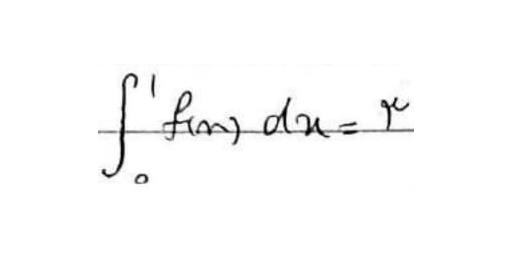 ∫₀¹ f(x) dx = 2